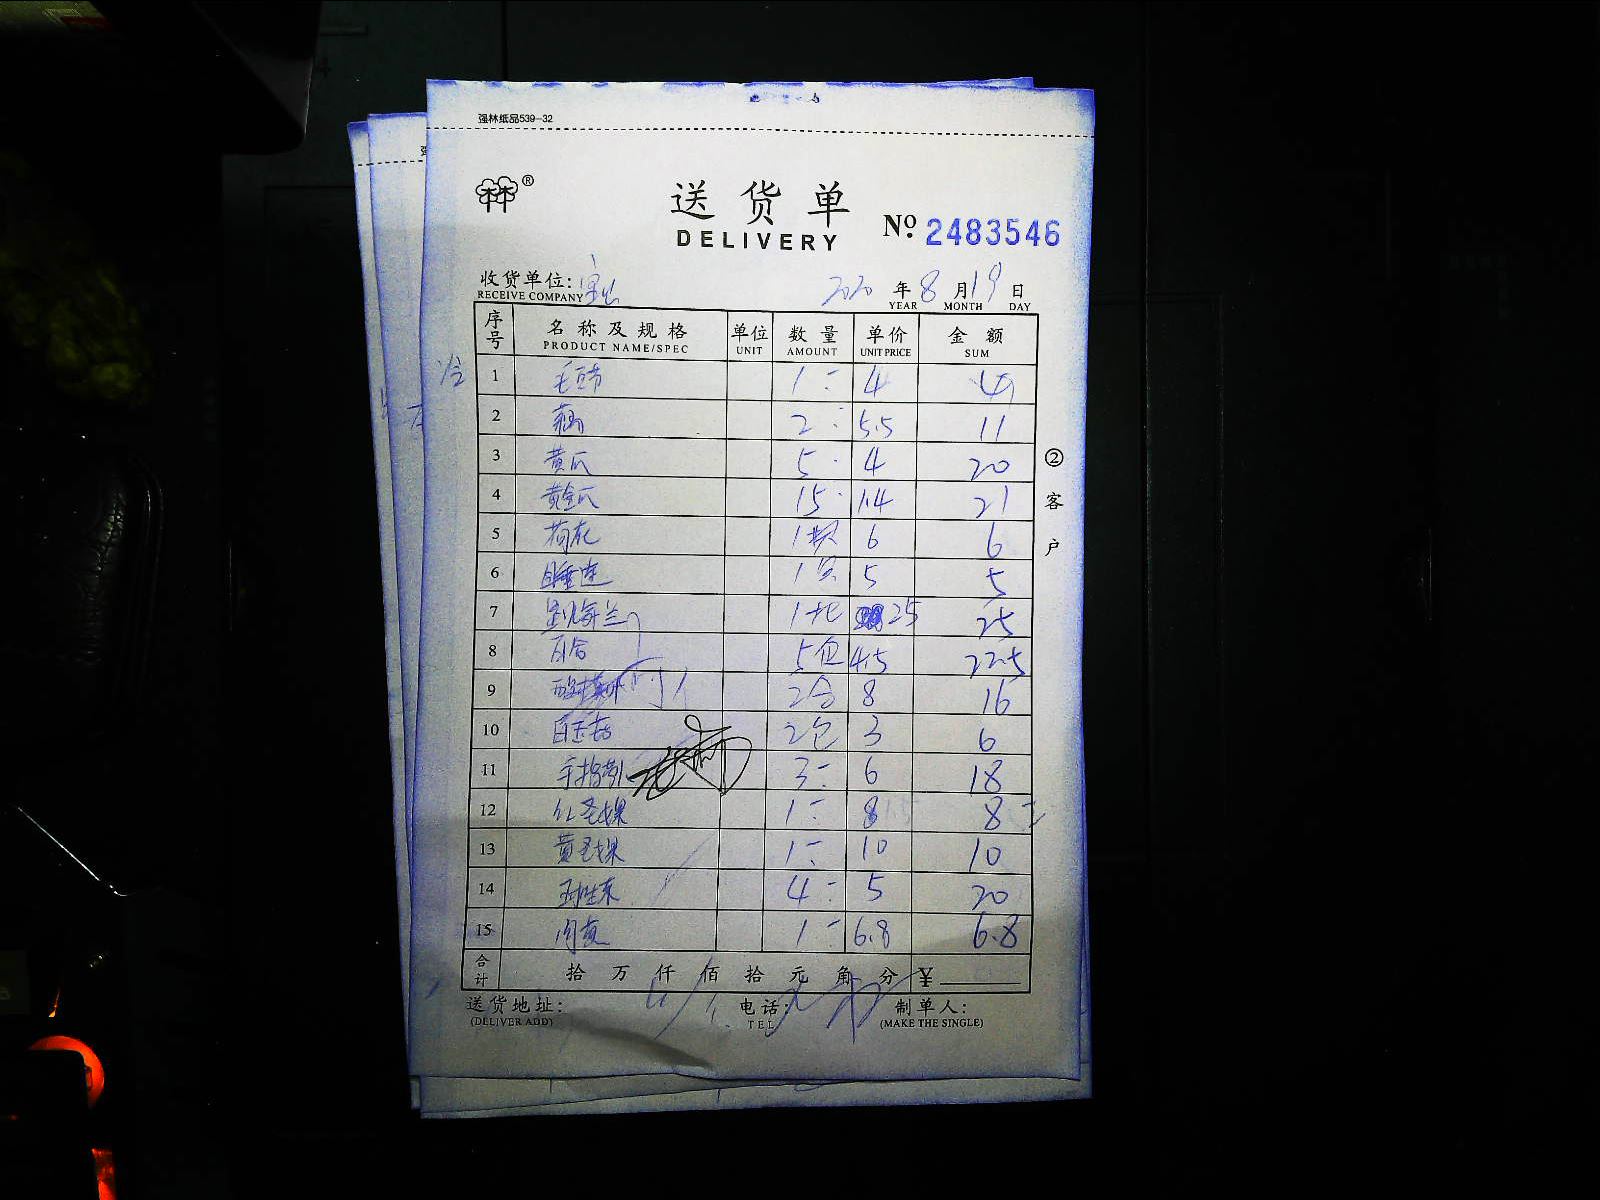 强林纸品539-32
® 送货单 № 2483546
DELIVERY
收货单位: 2020 年 8 月 19 日
RECEIVE COMPANY YEAR MONTH DAY
序号 名称及规格 单位 数量 单价 金额
PRODUCT NAME/SPEC UNIT AMOUNT UNIT PRICE SUM
冷 1 毛豆节 1 4 4
2 2 5.5 11
3 黄瓜 5 4 20
4 黄金瓜 15 1.4 21
5 荷花 1 6 6
6 睡莲 1 5 5
7 1 25 25
8 百合 5包 4.5 22.5
9 2合 8 16
10 白玉菇 2包 3 6
11 手指萝卜 3 6 18
12 红圣女果 1 8 8
13 黄圣女果 1 10 10
14 4 5 20
15 1 6.8 6.8
合计 拾 万 仟 佰 拾 元 角 分 ¥
送货地址: 电话: 制单人:
(DELIVER ADD) TEL (MAKE THE SINGLE)
② 客户